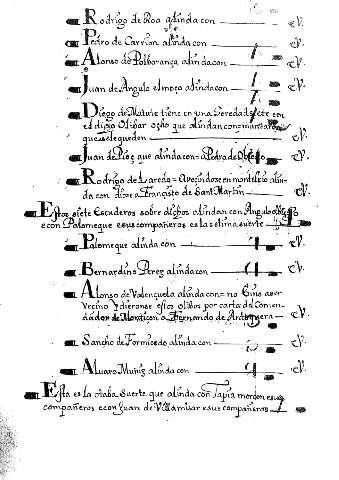 Rodrigo de Roa alinda con
Pedro de Carrion alinda con
Alonso de Polborança alinda con
Juan de Angulo el moço alinda con
Diego de Maturte tiene en una heredad siete con
el dicho olibar ocho que alindan con
que se le queden
Juan de Rioz que alinda con Pedro de
Rodrigo de Laredo = Avecindose en montesio alin-
da con dicho a Françisco de Sant Martin
Estos siete Escuderos sobre dichos alindan con Angulo
e con Palomeque e sus compañeros es la setima suerte
Palomeque alinda con
Bernardino Perez alinda con
Alonso de Valençuela alinda con = no bino a ser
Vecino y dieronse estos olibos por carta del comen-
dador de a Fernando de
Sancho de Formicedo alinda con
Alvaro Muñiz alinda con
Esta es la otaba suerte que alinda con Tapia e sus
compañeros e con Juan de Villamisar e sus compañeros